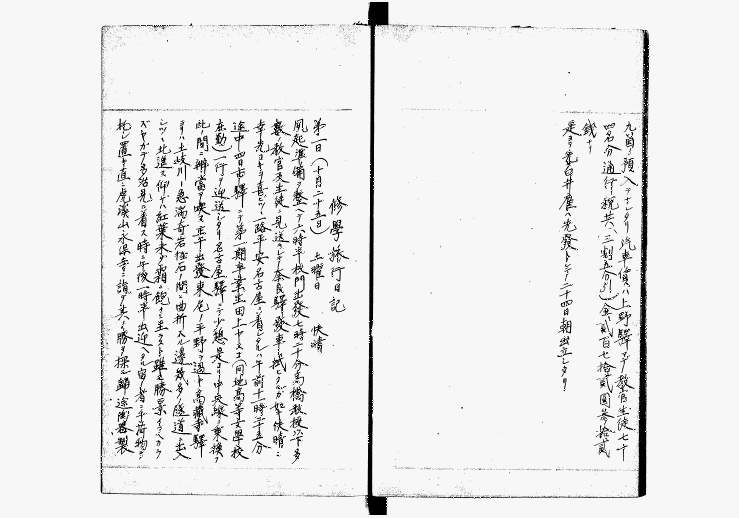 九圓ヲ預入ヲナシタリ汽車賃ハ上野驛マデ教官生徒七十
四名分通行税共ハ三割五分引金貳百七拾貳圓參拾貳
錢ナリ
是ヨリ先臼井雇ハ先發トシテ二十四日朝出立シタリ
修學旅行日記
第一日(十月二十五日) 土曜日 快晴
夙起準備ヲ整ヘテ六時半校門出發七時二十分高橋教授以下多
數ノ教官及生徒ニ見送ラレテ奈良驛ヲ發車ス拭ヒタルガ如キ快晴ニ
幸先ヨキヲ喜ビツヽ一路平安名古屋ニ着シタルハ午前十一時二十五分
途中四日市驛ニテ第一期卒業生田上ヤスヱ(同地高等女學校
在勤)一行ヲ迎送シタリ名古屋驛ニテ少憩是ヨリ中央線ニ乘換ヘ
此ノ間ニ辨當ヲ喫ス正午出發東尾ノ平野ヲ過ギ高藏寺驛
ヨリハ土岐川ノ急湍奇岩怪石ノ間ニ曲折スル邊幾多ノ隧道ヲ出入
シツヽ北進ス仰ゲバ紅葉未ダ霜ニ飽カザレド雖モ勝景イフベカラ
ズヤガテ多治見ニ着ス時ニ午後一時半出迎ヘタル宿ノ者ニ手荷物ヲ
托シ置キ直ニ虎溪山永保寺ニ詣ヅ共ニ勝ヲ探シ歸途陶器製